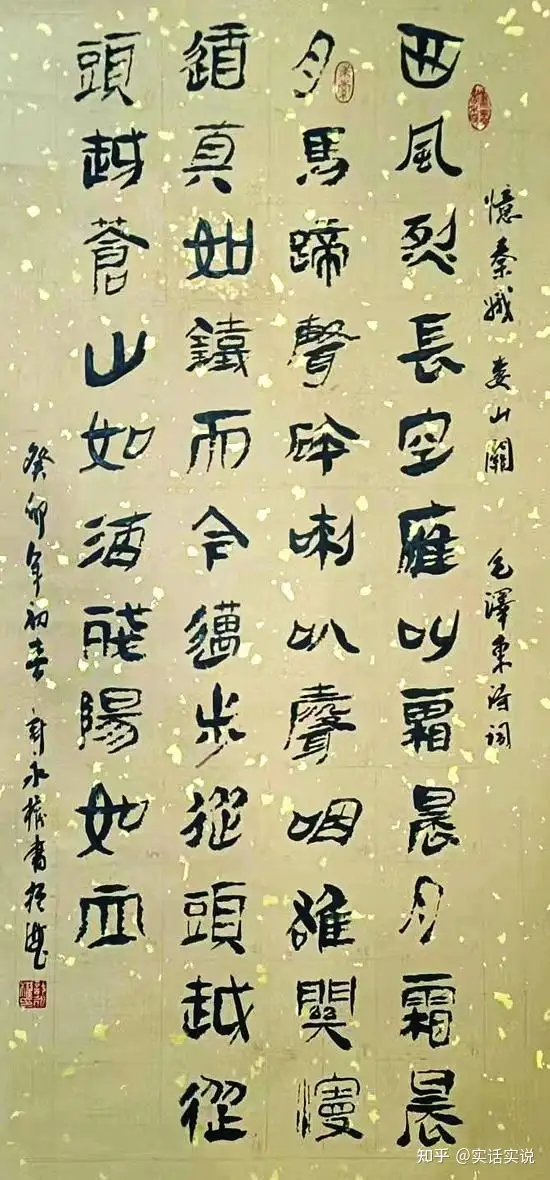 憶秦娥 娄山關 毛澤東诗词
西風烈長空雁叫霜晨月霜晨
月馬蹄聲碎喇叭聲咽雄關漫
道真如鐵而今邁步從頭越從
頭越蒼山如海殘陽如血
癸卯年初春 永 書
知乎 @实话实说